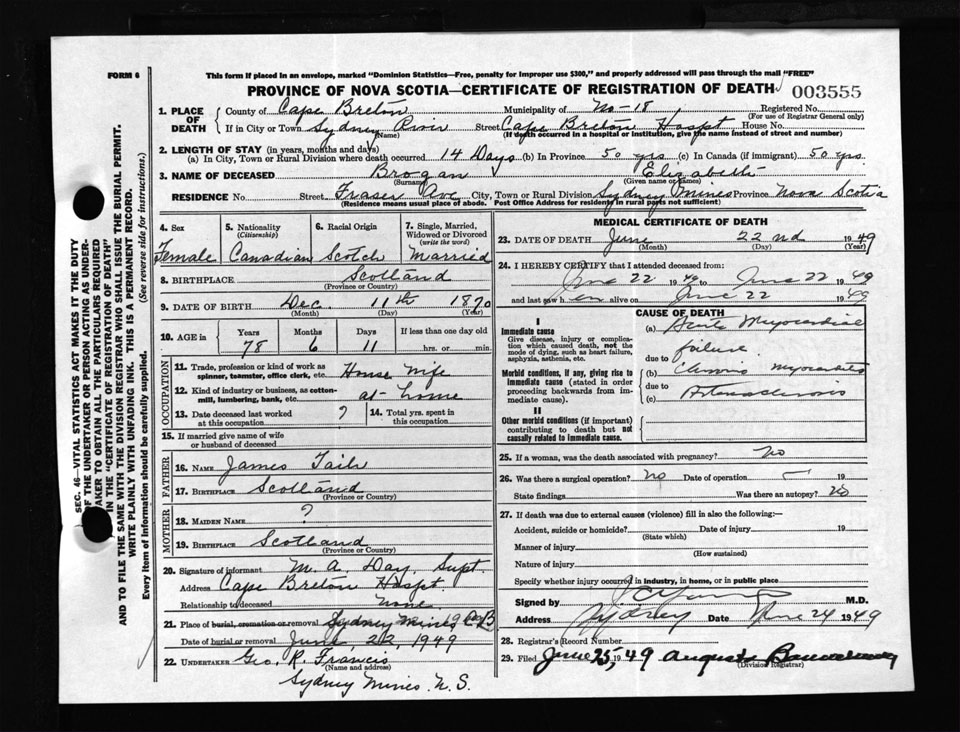 FORM 6
This form if placed in an envelope, marked "Dominion Statistics—Free, penalty for improper use $300," and properly addressed will pass through the mail "FREE"
PROVINCE OF NOVA SCOTIA—CERTIFICATE OF REGISTRATION OF DEATH 003555
1. PLACE OF DEATH
County of Cape Breton Municipality of No-18 Registered No.
(For use of Registrar General only)
If in City or Town Sydney River Street Cape Breton Hospt House No.
(Name) (If death occurred in a hospital or institution, give the name instead of street and number)
2. LENGTH OF STAY (in years, months and days)
(a) In City, Town or Rural Division where death occurred 14 Days (b) In Province 50 yrs (c) In Canada (if immigrant) 50 yrs.
3. NAME OF DECEASED Brogan Elizabeth
(Surname) (Given name or names)
RESIDENCE No. Street Fraser Ave City, Town or Rural Division Sydney Mines Province Nova Scotia
(Residence means usual place of abode. Post Office Address for residents in rural parts not sufficient)
4. Sex
Female
5. Nationality (Citizenship)
Canadian
6. Racial Origin
Scotch
7. Single, Married, Widowed or Divorced (write the word)
Married
8. BIRTHPLACE Scotland
(Province or Country)
9. DATE OF BIRTH Dec. 11th 1870
(Month) (Day) (Year)
10. AGE in Years Months Days If less than one day old
78 6 11 hrs. or min.
OCCUPATION
11. Trade, profession or kind of work as spinner, teamster, office clerk, etc. House wife
12. Kind of industry or business, as cotton-mill, lumbering, bank, etc. at- home
13. Date deceased last worked at this occupation ? 14. Total yrs. spent in this occupation
15. If married give name of wife or husband of deceased
FATHER
16. NAME James
17. BIRTHPLACE Scotland
(Province or Country)
MOTHER
18. MAIDEN NAME ?
19. BIRTHPLACE Scotland
(Province or Country)
20. Signature of informant M. A. Day, Supt.
Address Cape Breton Hospt.
Relationship to deceased None
21. Place of burial, cremation or removal Sydney Mines CB
Date of burial or removal June 22, 1949
22. UNDERTAKER Geo. R. Francis
(Name and address)
Sydney Mines. N S.
MEDICAL CERTIFICATE OF DEATH
23. DATE OF DEATH June 22nd 1949
(Month) (Day) (Year)
24. I HEREBY CERTIFY that I attended deceased from:
June 22 1949 to June 22 1949
and last saw h er alive on June 22 1949
CAUSE OF DEATH
I
Immediate cause
Give disease, injury or complication which caused death, not the mode of dying, such as heart failure, asphyxia, asthenia, etc.
(a) Acute Myocardial failure.
due to
Morbid conditions, if any, giving rise to immediate cause (stated in order proceeding backwards from immediate cause).
(b) Chronic Myocarditis
due to
(c) Arteriosclerosis
II
Other morbid conditions (if important) contributing to death but not causally related to immediate cause.
25. If a woman, was the death associated with pregnancy? No
26. Was there a surgical operation? No Date of operation 19
State findings Was there an autopsy? No
27. If death was due to external causes (violence) fill in also the following:—
Accident, suicide or homicide? Date of injury 19
(State which)
Manner of injury
(How sustained)
Nature of injury
Specify whether injury occurred in industry, in home, or in public place
Signed by M.D.
Address Sydney Date June 24 1949
28. Registrar's Record Number
29. Filed June 25, 1949 Auguste
(Division Registrar)
SEC. 46—VITAL STATISTICS ACT MAKES IT THE DUTY
OF THE UNDERTAKER OR PERSON ACTING AS UNDER-
TAKER TO OBTAIN ALL THE PARTICULARS REQUIRED
IN THE "CERTIFICATE OF REGISTRATION OF DEATH"
AND TO FILE THE SAME WITH THE DIVISION REGISTRAR WHO SHALL ISSUE THE BURIAL PERMIT.
WRITE PLAINLY WITH UNFADING INK. THIS IS A PERMANENT RECORD.
Every item of Information should be carefully supplied. (See reverse side for instructions.)